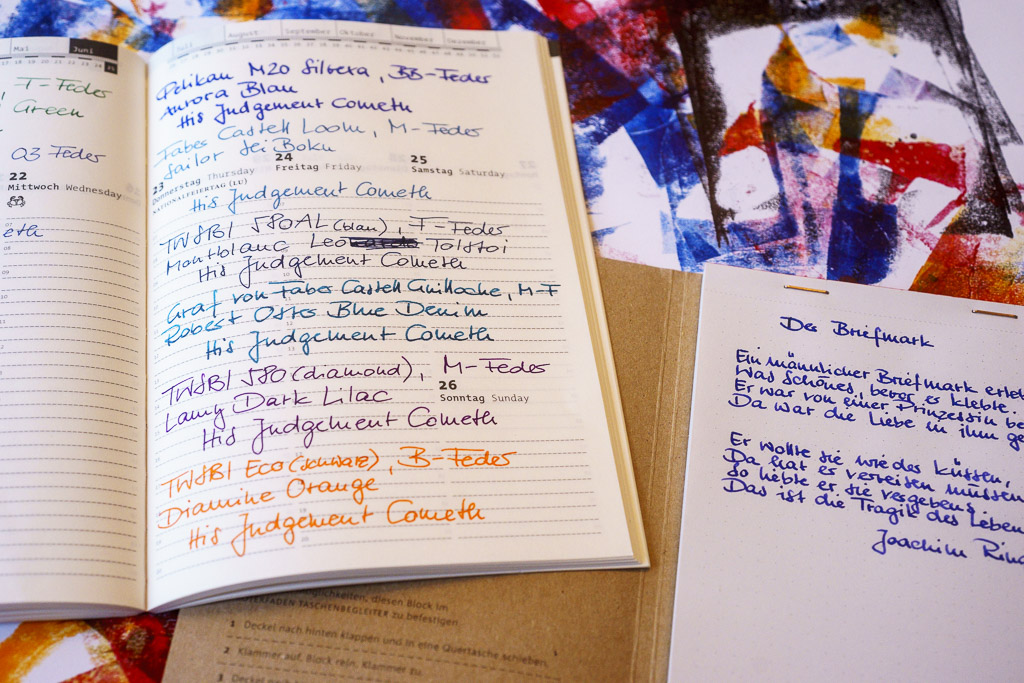 Mai
Juni
T-Feder
Green
03 Feder
22
Mittwoch Wednesday
eth
Juli August September Oktober November Dezember
Pelikan M20 Silvera, BB-Feder
Aurora Blau
His Judgement Cometh
Faber Castell Loom, M-Feder
Sailor Sei Boku
23
Donnerstag Thursday
NATIONALFEIERTAG (LU)
24
Freitag Friday
25
Samstag Saturday
His Judgement Cometh
TWSBI 580AL (blau), F-Feder
Montblanc Leo Tolstoi
His Judgement Cometh
Graf von Faber Castell Guilloche, M-F
Robert Oster Blue Denim
His Judgement Cometh
TWSBI 580 (diamond), M-Feder
26
Sonntag Sunday
Lamy Dark Lilac
His Judgement Cometh
TWSBI Eco (schwarz), B-Feder
Diamine Orange
His Judgement Cometh
Der Briefmark
Ein männlicher Briefmark erleb
Was Schönes, bevor er klebte.
Er war von einer Prinzessin be
Da war die Liebe in ihm ge
Er wollte sie wieder küssen,
Da hat er verreisen müssen
So liebte er sie vergebens.
Das ist die Tragik des Leben
Joachim Rin
glichkeiten, diesen Block im
FADEN TASCHENBEGLEITER zu befestigen.
1 Deckel nach hinten klappen und in eine Quertasche schieben.
2 Klammer auf, Block rein, Klammer zu.
3 Deckel nach